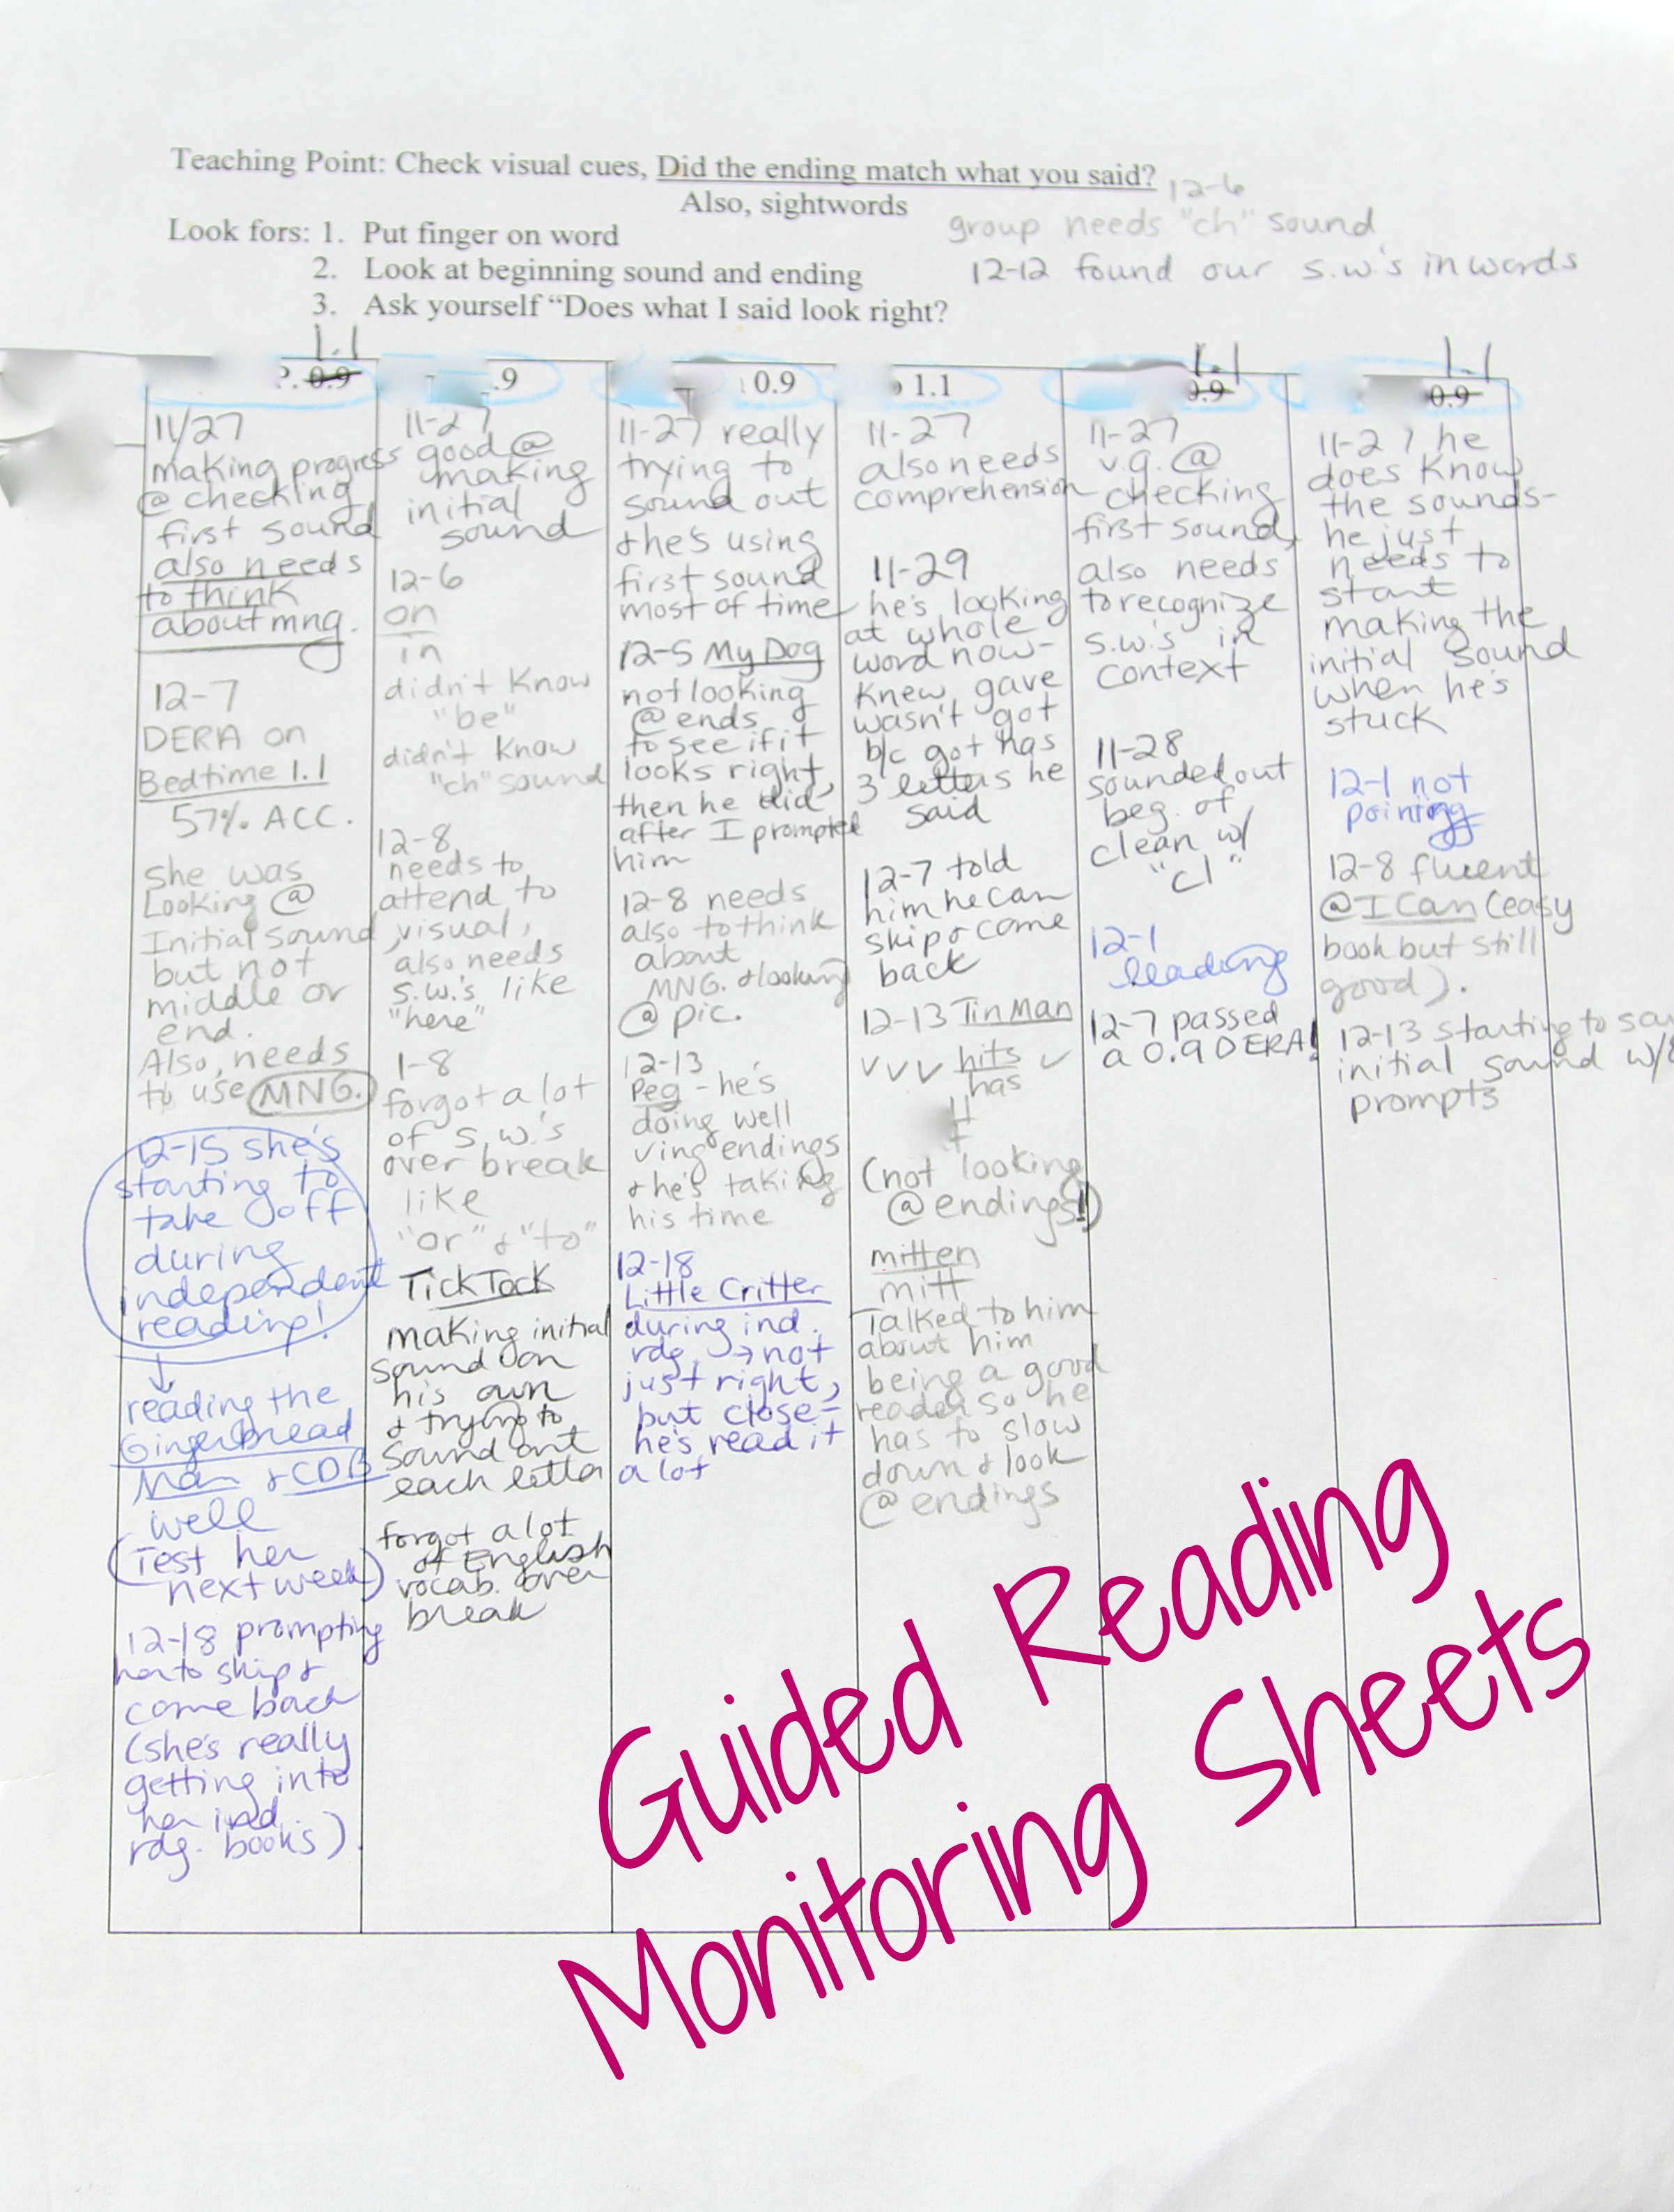 Teaching Point: Check visual cues, Did the ending match what you said?
Also, sightwords
12-6
group needs "ch" sound
12-12 found our s.w.'s in words
Look fors: 1. Put finger on word
2. Look at beginning sound and ending
3. Ask yourself “Does what I said look right?
1.1
0.9
11/27
making progress
@ checking
first sound
also needs
to think
about mng.
12-7
DERA on
Bedtime 1.1
57% ACC.
She was
Looking @
Initial sound
but not
middle or
end.
Also, needs
to use MNG.
12-15 she's
starting to
take off
during
independent
reading!
reading the
Gingerbread
Man & CDB
well
(Test her
next week)
12-18 prompting
her to skip &
come back
(she's really
getting into
her ind.
rdg. books).
.9
11-27
good @
making
initial
sound
12-6
on
in
didn't know
"be"
didn't know
"ch" sound
12-8
needs to
attend to
visual,
also needs
s.w.'s like
"here"
1-8
forgot a lot
of s.w.'s
over break
like
"or" & "to"
Tick Tock
making initial
sound on
his own
& trying to
sound out
each letter
forgot a lot
of English
vocab. over
break
0.9
11-27 really
trying to
sound out
& he's using
first sound
most of time
12-5 My Dog
not looking
@ ends
to see if it
looks right,
then he did
after I prompted
him
12-8 needs
also to think
about
MNG. & looking
@ pic.
12-13
Peg - he's
doing well
ving endings
& he's taking
his time
12-18
Little Critter
during ind.
rdg. → not
just right,
but close-
he's read it
a lot
1.1
11-27
also needs
comprehension
11-29
he's looking
at whole
word now-
Knew gave
wasn't got
b/c got has
3 letters he
said
12-7 told
him he can
skip & come
back
12-13 Tin Man
✓ ✓ ✓ hits ✓
has
(not looking
@ endings!)
mitten
mitt
Talked to him
about him
being a good
reader so he
has to slow
down & look
@ endings
1.1
0.9
11-27
v.g. @
checking
first sound,
also needs
to recognize
s.w.'s in
context
11-28
sounded out
beg. of
clean w/
"cl"
12-1
leading
12-7 passed
a 0.9 DERA!
1.1
0.9
11-27 he
does know
the sounds-
he just
needs to
start
making the
initial sound
when he's
stuck
12-1 not
pointing
12-8 fluent
@ I Can (easy
book but still
good).
12-13 starting to
initial sound
prompts
Guided Reading
Monitoring Sheets